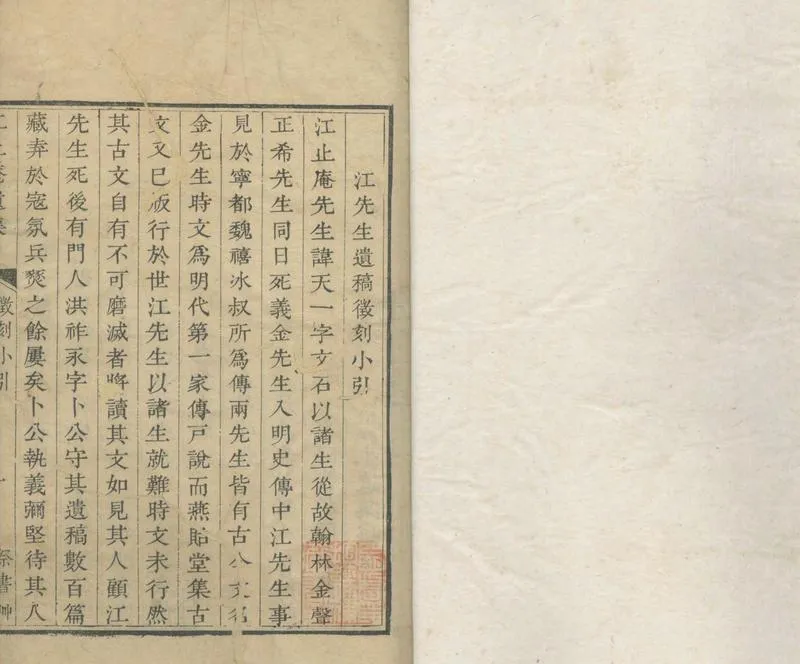 江先生遺稿徵刻小引
江止庵先生諱天一字文石以諸生從故翰林金聲
正希先生同日死義金先生入明史傳中江先生事
見於寧都魏禧冰叔所爲傳兩先生皆有古文名
金先生時文爲明代第一家傳戸說而燕貽堂集古
文又已版行於世江先生以諸生就難時文未行然
其古文自有不可磨滅者將讀其文如見其人顧江
先生死後有門人洪祚永字卜公守其遺稿數百篇
藏弆於寇氛兵燹之餘屢矣卜公執義彌堅待其人
徵刻小引
祭書艸